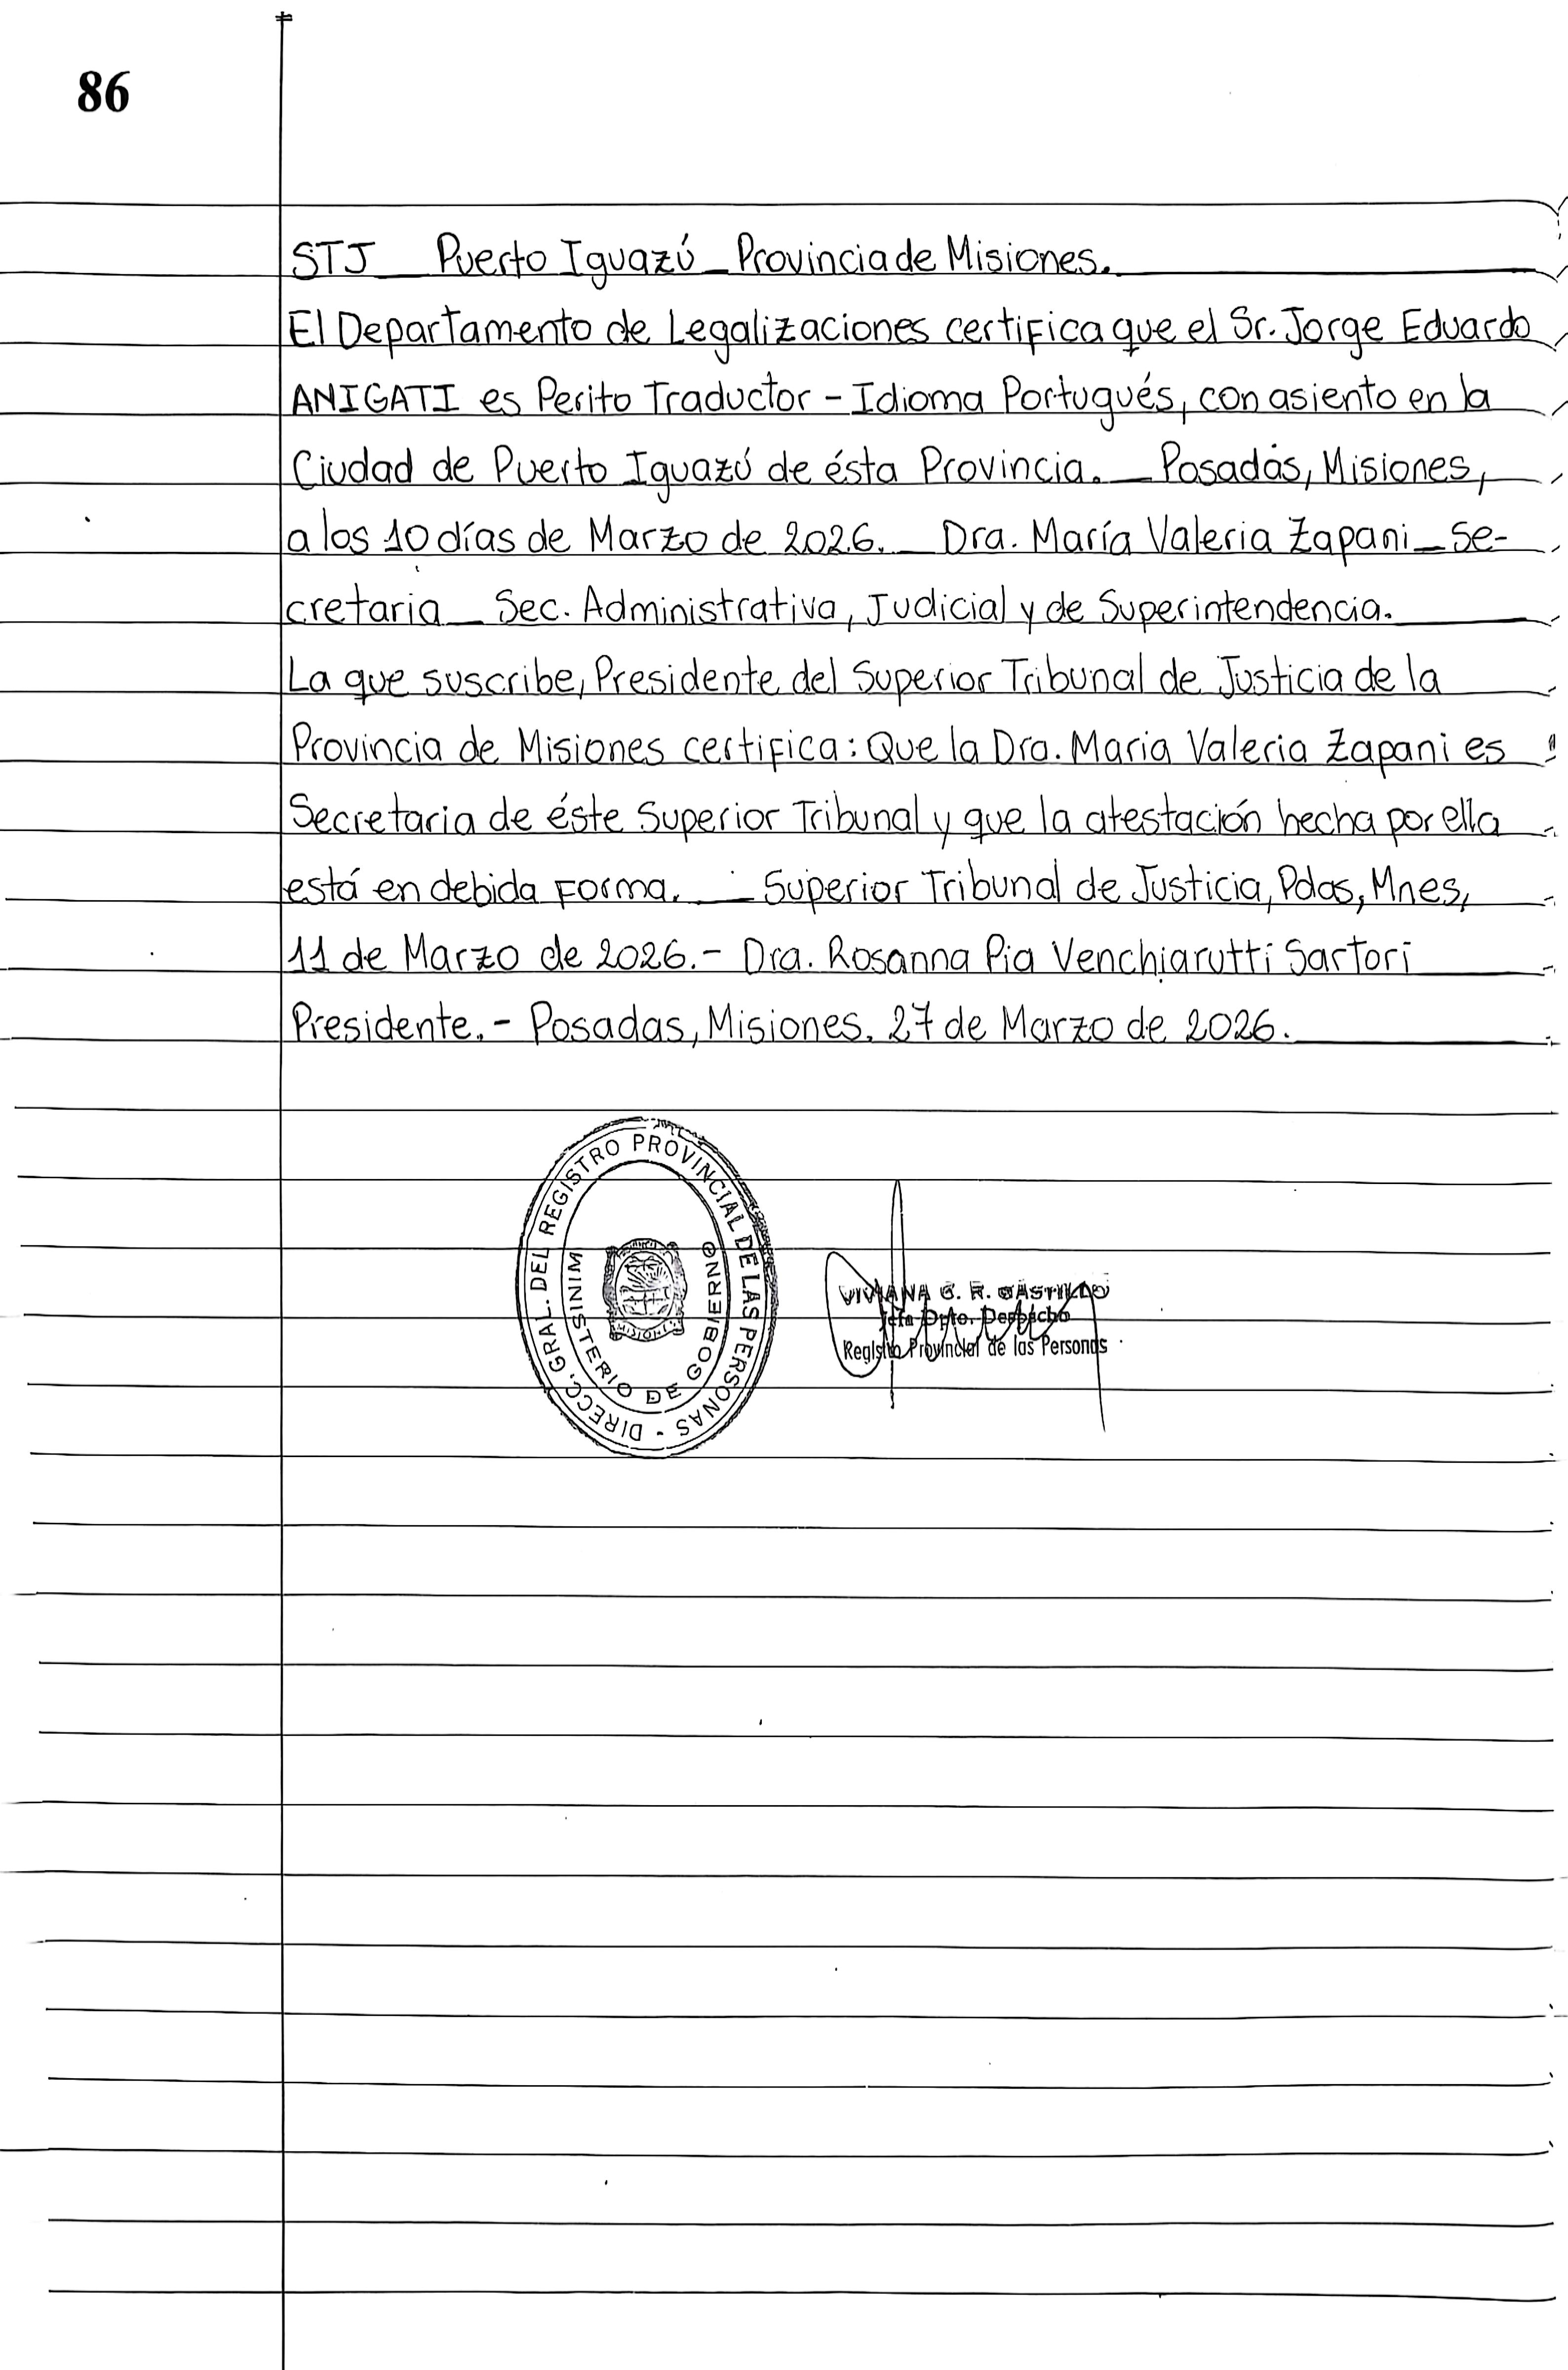 86
STJ _ Puerto Iguazú _ Provincia de Misiones.
El Departamento de Legalizaciones certifica que el Sr. Jorge Eduardo
ANIGATI es Perito Traductor - Idioma Portugués, con asiento en la
Ciudad de Puerto Iguazú de ésta Provincia. _ Posadás, Misiones,
a los 10 días de Marzo de 2026. _ Dra. María Valeria Zapani _ Se-
cretaria _ Sec. Administrativa, Judicial y de Superintendencia.
La que suscribe, Presidente del Superior Tribunal de Justicia de la
Provincia de Misiones certifica: Que la Dra. Maria Valeria Zapani es
Secretaria de éste Superior Tribunal y que la atestación hecha por ella
está en debida forma. _ Superior Tribunal de Justicia, Pdas, Mnes,
11 de Marzo de 2026.- Dra. Rosanna Pia Venchiarutti Sartori
Presidente.- Posadas, Misiones, 27 de Marzo de 2026.
DIRECC. GRAL. DEL REGISTRO PROVINCIAL DE LAS PERSONAS -
MINISTERIO DE GOBIERNO
MISIONES
VIVIANA G. R. CASTILLO
Jefa Dpto. Despacho
Registro Provincial de las Personas